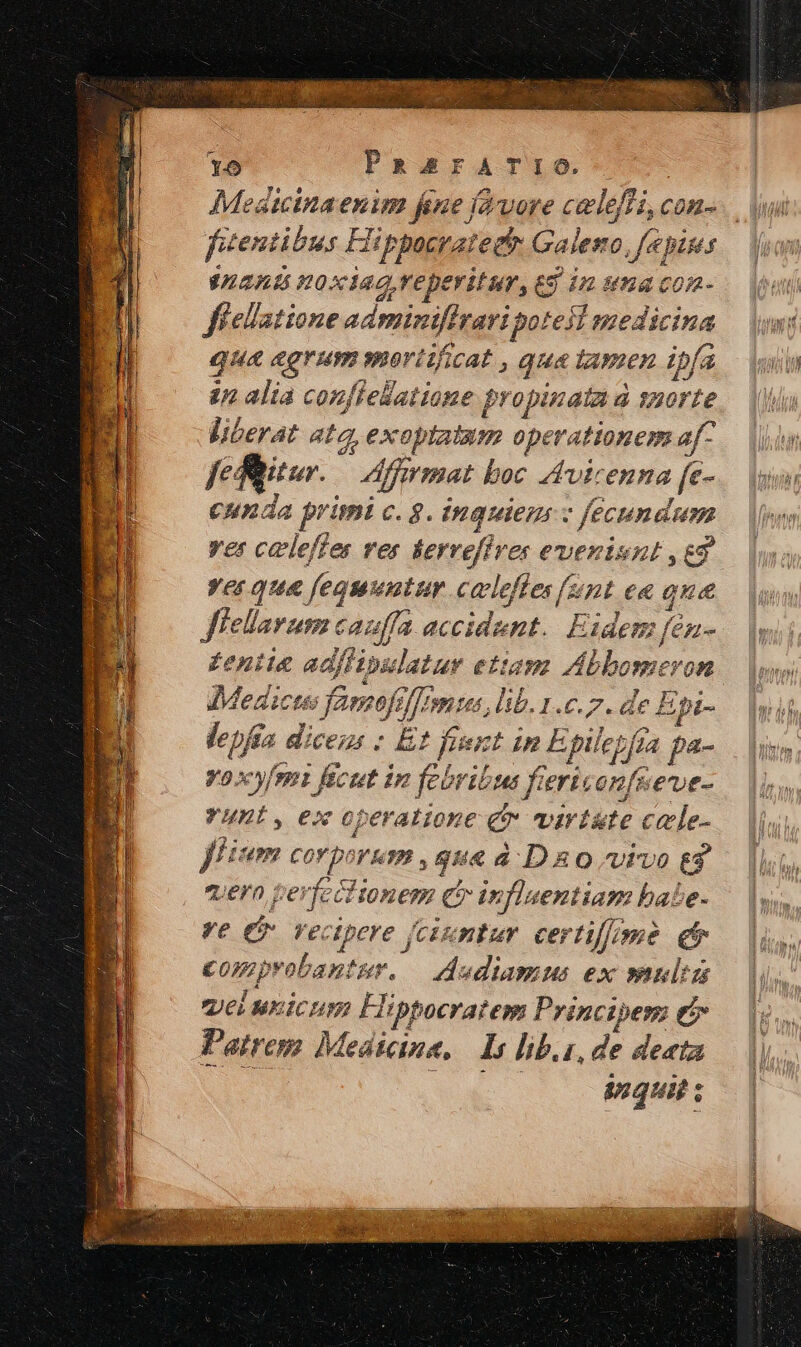 10 PRÆFATIO.
Medicina enim sine favore cælesti, con-
sitentibus Hippocrate & Galeno, sæpius
inanis noxiaq, reperitur, & in una con-
stellatione administrari potest medicina
quæ ægrum mortificat, quæ tamen ipsa
in alia constellatione propinata à morte
liberat atq, exoptatum operationem as-
sequitur. Affirmat hoc Avicenna se-
cunda primi c. 8. inquiens : secundum
res cælestes res terrestres eveniunt, &
res quæ sequuntur cælestes sunt eæ quæ
stellarum caussa accidunt. Eidem sen-
tentiæ adstipulatur etiam Abhomeron
Medicus famosissimus, lib. 1. c. 7. de Epi-
lepsia dicens : Et fiunt in Epilepsia pa-
roxysmi sicut in febribus fieri consueve-
runt, ex operatione & virtute cæle-
stium corporum, quæ à DEO vivo &
vero perfectionem & influentiam habe-
re & recipere sciuntur certissimè &
comprobantur. Audiamus ex multis
vel unicum Hippocratem Principem &
Patrem Medicinæ. Is lib. 1, de diæta
inquit :